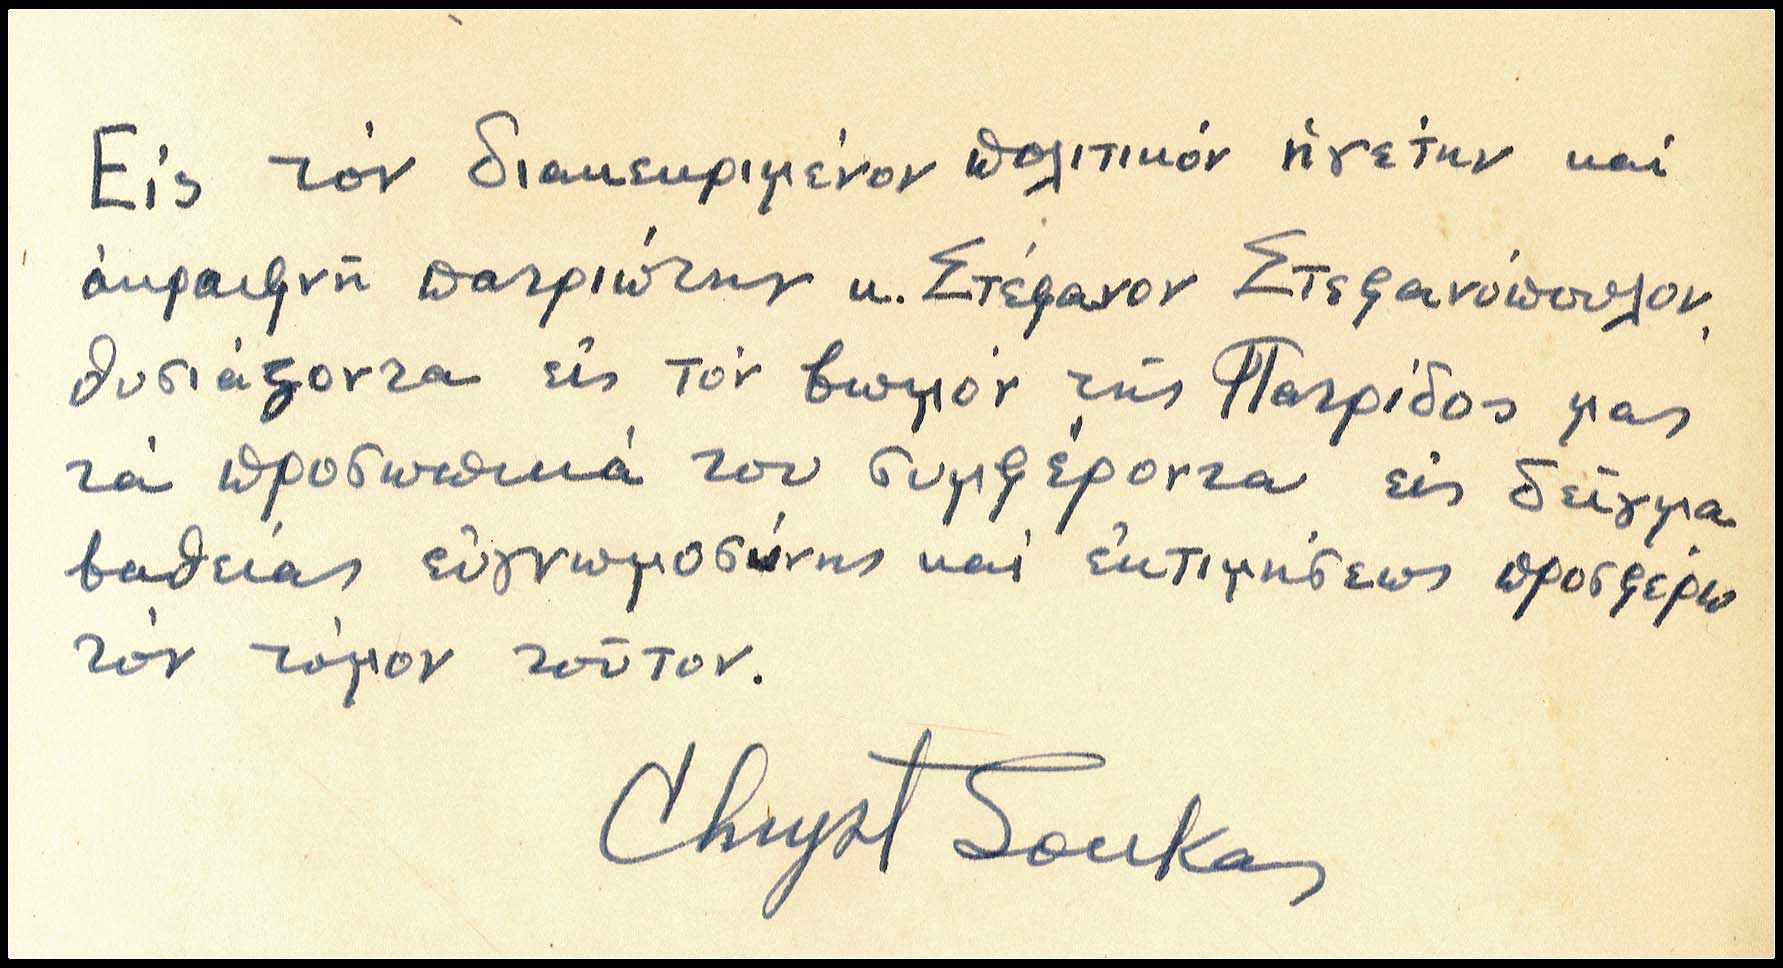 Εἰς τόν διακεκριμένον πολιτικόν ἡγέτην καί
ἀκραιφνῆ πατριώτην κ. Στέφανον Στεφανόπουλον,
θυσιάζοντα εἰς τόν βωμόν τῆς Πατρίδος μας
τά προσωπικά του συμφέροντα εἰς δεῖγμα
βαθείας εὐγνωμοσύνης καί ἐκτιμήσεως προσφέρω
τόν τόμον τοῦτον.
Chryst Soukas